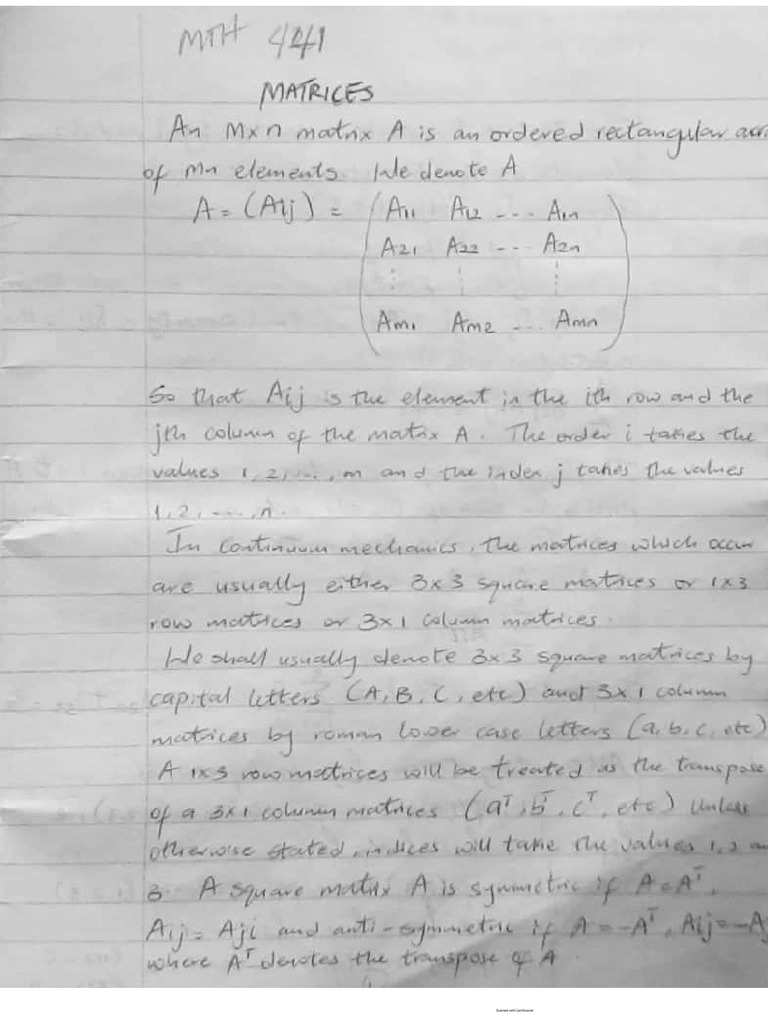 MTH 441
MATRICES
An Mxn matrix A is an ordered rectangular arr
of Mn elements. We denote A
A = (Aij) = ( A11 A12 --- A1n
A21 A22 --- A2n
⋮ ⋮ ⋮
Am1 Am2 --- Amn )
So that Aij is the element in the ith row and the
jth column of the matrix A. The order i takes the
values 1, 2, ..., m and the index j takes the values
1, 2, ---, n.
In continuum mechanics, the matrices which occur
are usually either 3x3 square matrices or 1x3
row matrices or 3x1 column matrices.
We shall usually denote 3x3 square matrices by
capital letters (A, B, C, etc) and 3x1 column
matrices by roman lower case letters (a, b, c, etc)
A 1x3 row matrices will be treated as the transpose
of a 3x1 column matrices (aᵀ, bᵀ, cᵀ, etc) Unless
otherwise stated, indices will take the values 1, 2 an
3. A square matrix A is symmetric if A = Aᵀ,
Aij = Aji and anti-symmetric if A = -Aᵀ, Aij = -A
where Aᵀ denotes the transpose of A